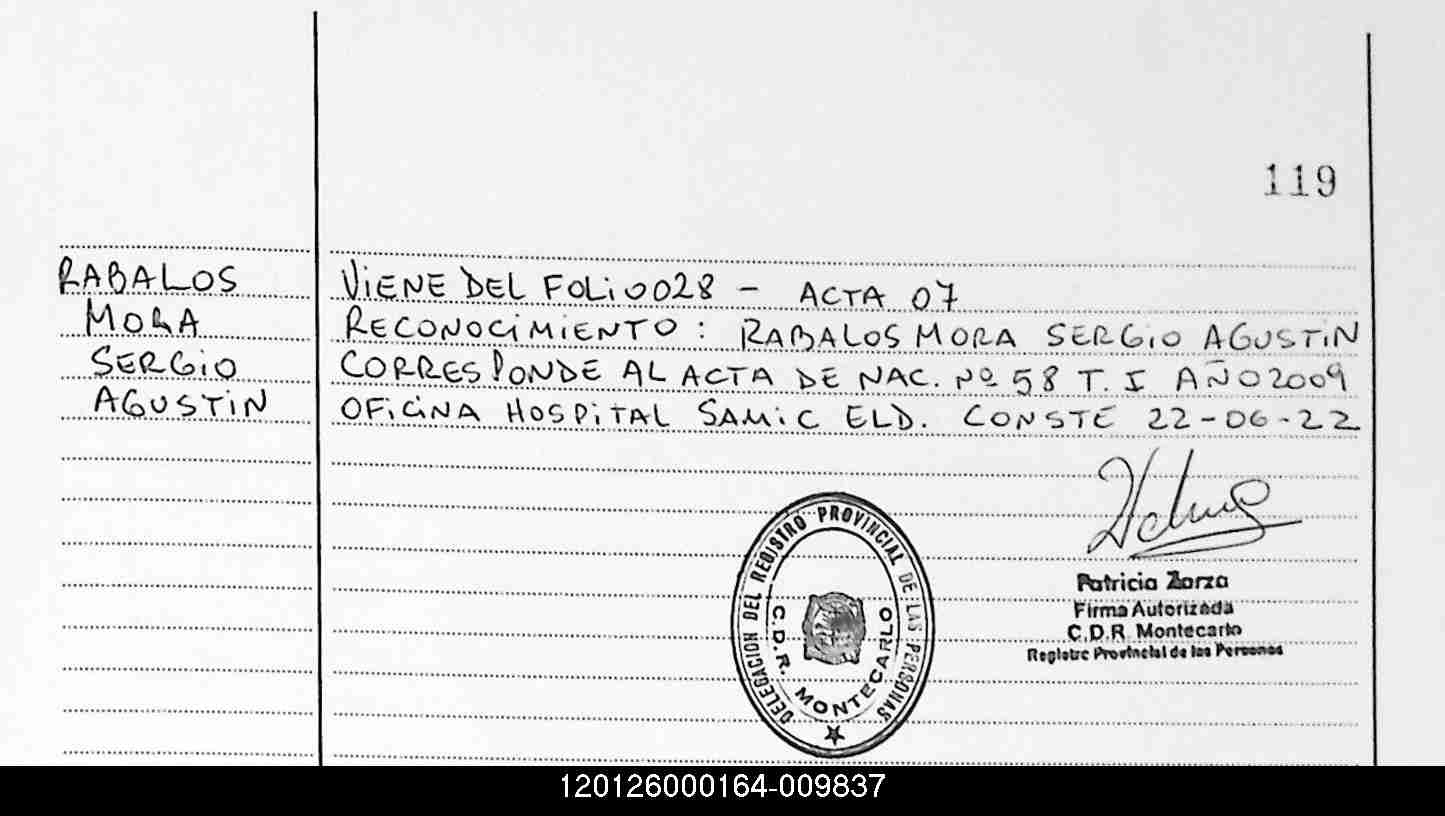 119
RABALOS
MORA
SERGIO
AGUSTIN
VIENE DEL FOLIO 028 - ACTA 07
RECONOCIMIENTO: RABALOS MORA SERGIO AGUSTIN
CORRESPONDE AL ACTA DE NAC. Nº 58 T. I AÑO 2009
OFICINA HOSPITAL SAMIC ELD. CONSTE 22-06-22
DELEGACION DEL REGISTRO PROVINCIAL DE LAS PERSONAS
C.D.R. MONTECARLO
Patricia Zarza
Firma Autorizada
C.D.R. Montecarlo
Registro Provincial de las Personas
120126000164-009837